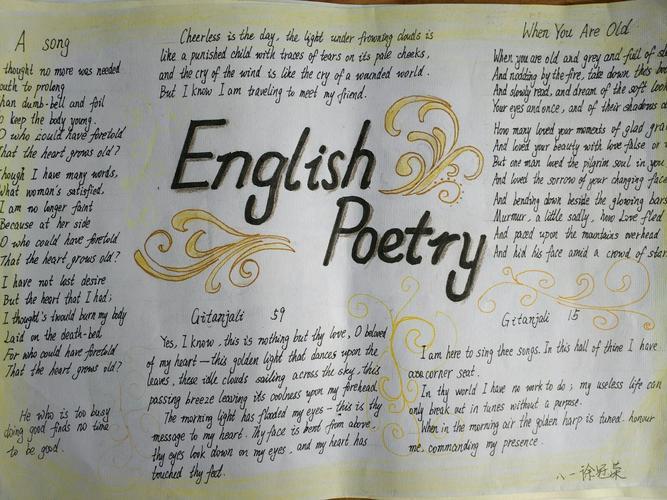 A song
thought no more was needed
outh to prolong
han dumb-bell and foil
o keep the body young.
O who could have foretold
That the heart grows old?
hough I have many words,
What woman's satisfied.
I am no longer faint
Because at her side
O who could have foretold
That the heart grows old?
I have not lost desire
But the heart that I had;
I thought's twould burn my body
Laid on the death-bed
For who could have foretold
That the heart grows old?
He who is too busy
doing good finds no time
to be good.
Cheerless is the day, the light under frowning clouds is
like a punished child with traces of tears on its pale cheeks,
and the cry of the wind is like the cry of a wounded world.
But I know I am traveling to meet my friend.
English
Poetry
Gitanjali 59
Yes, I know, this is nothing but thy love, O beloved
of my heart — this golden light that dances upon the
leaves, these idle clouds sailing across the sky, this
passing breeze leaving its coolness upon my forehead.
The morning light has flooded my eyes — this is thy
message to my heart. Thy face is bent from above,
thy eyes look down on my eyes, and my heart has
touched thy feet.
When You Are Old
When you are old and grey and full of
And nodding by the fire, take down this
And slowly read, and dream of the soft look
Your eyes and once, and of their shadows
How many loved your moments of glad gra
And loved your beauty with love false or
But one man loved the pilgrim soul in you
And loved the sorrow of your changing face
And bending down beside the glowing bars
Murmur, a little sadly, how Love fled
And paced upon the mountains overhead
And hid his face amid a crowd of star
Gitanjali 15
I am here to sing thee songs. In this hall of thine I have
a corner seat.
In thy world I have no work to do; my useless life can
only break out in tunes without a purpose.
When in the morning air the golden harp is tuned, honour
me, commanding my presence.
八一 徐冠